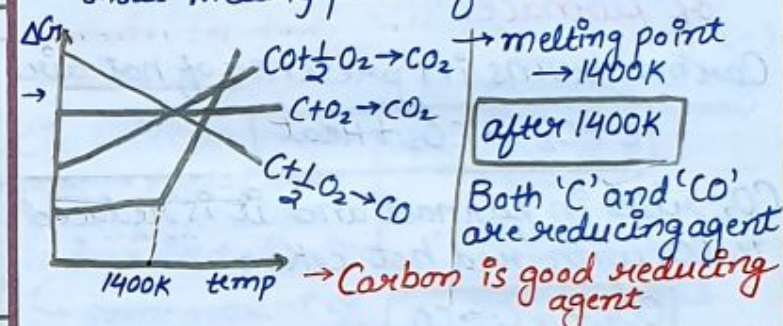 ΔG
→
CO+1/2 O₂→CO₂
C+O₂→CO₂
C+1/2 O₂→CO
1400K temp
→melting point
→1400K
after 1400K
Both 'C' and 'CO'
are reducing agent
→Carbon is good reducing
agent